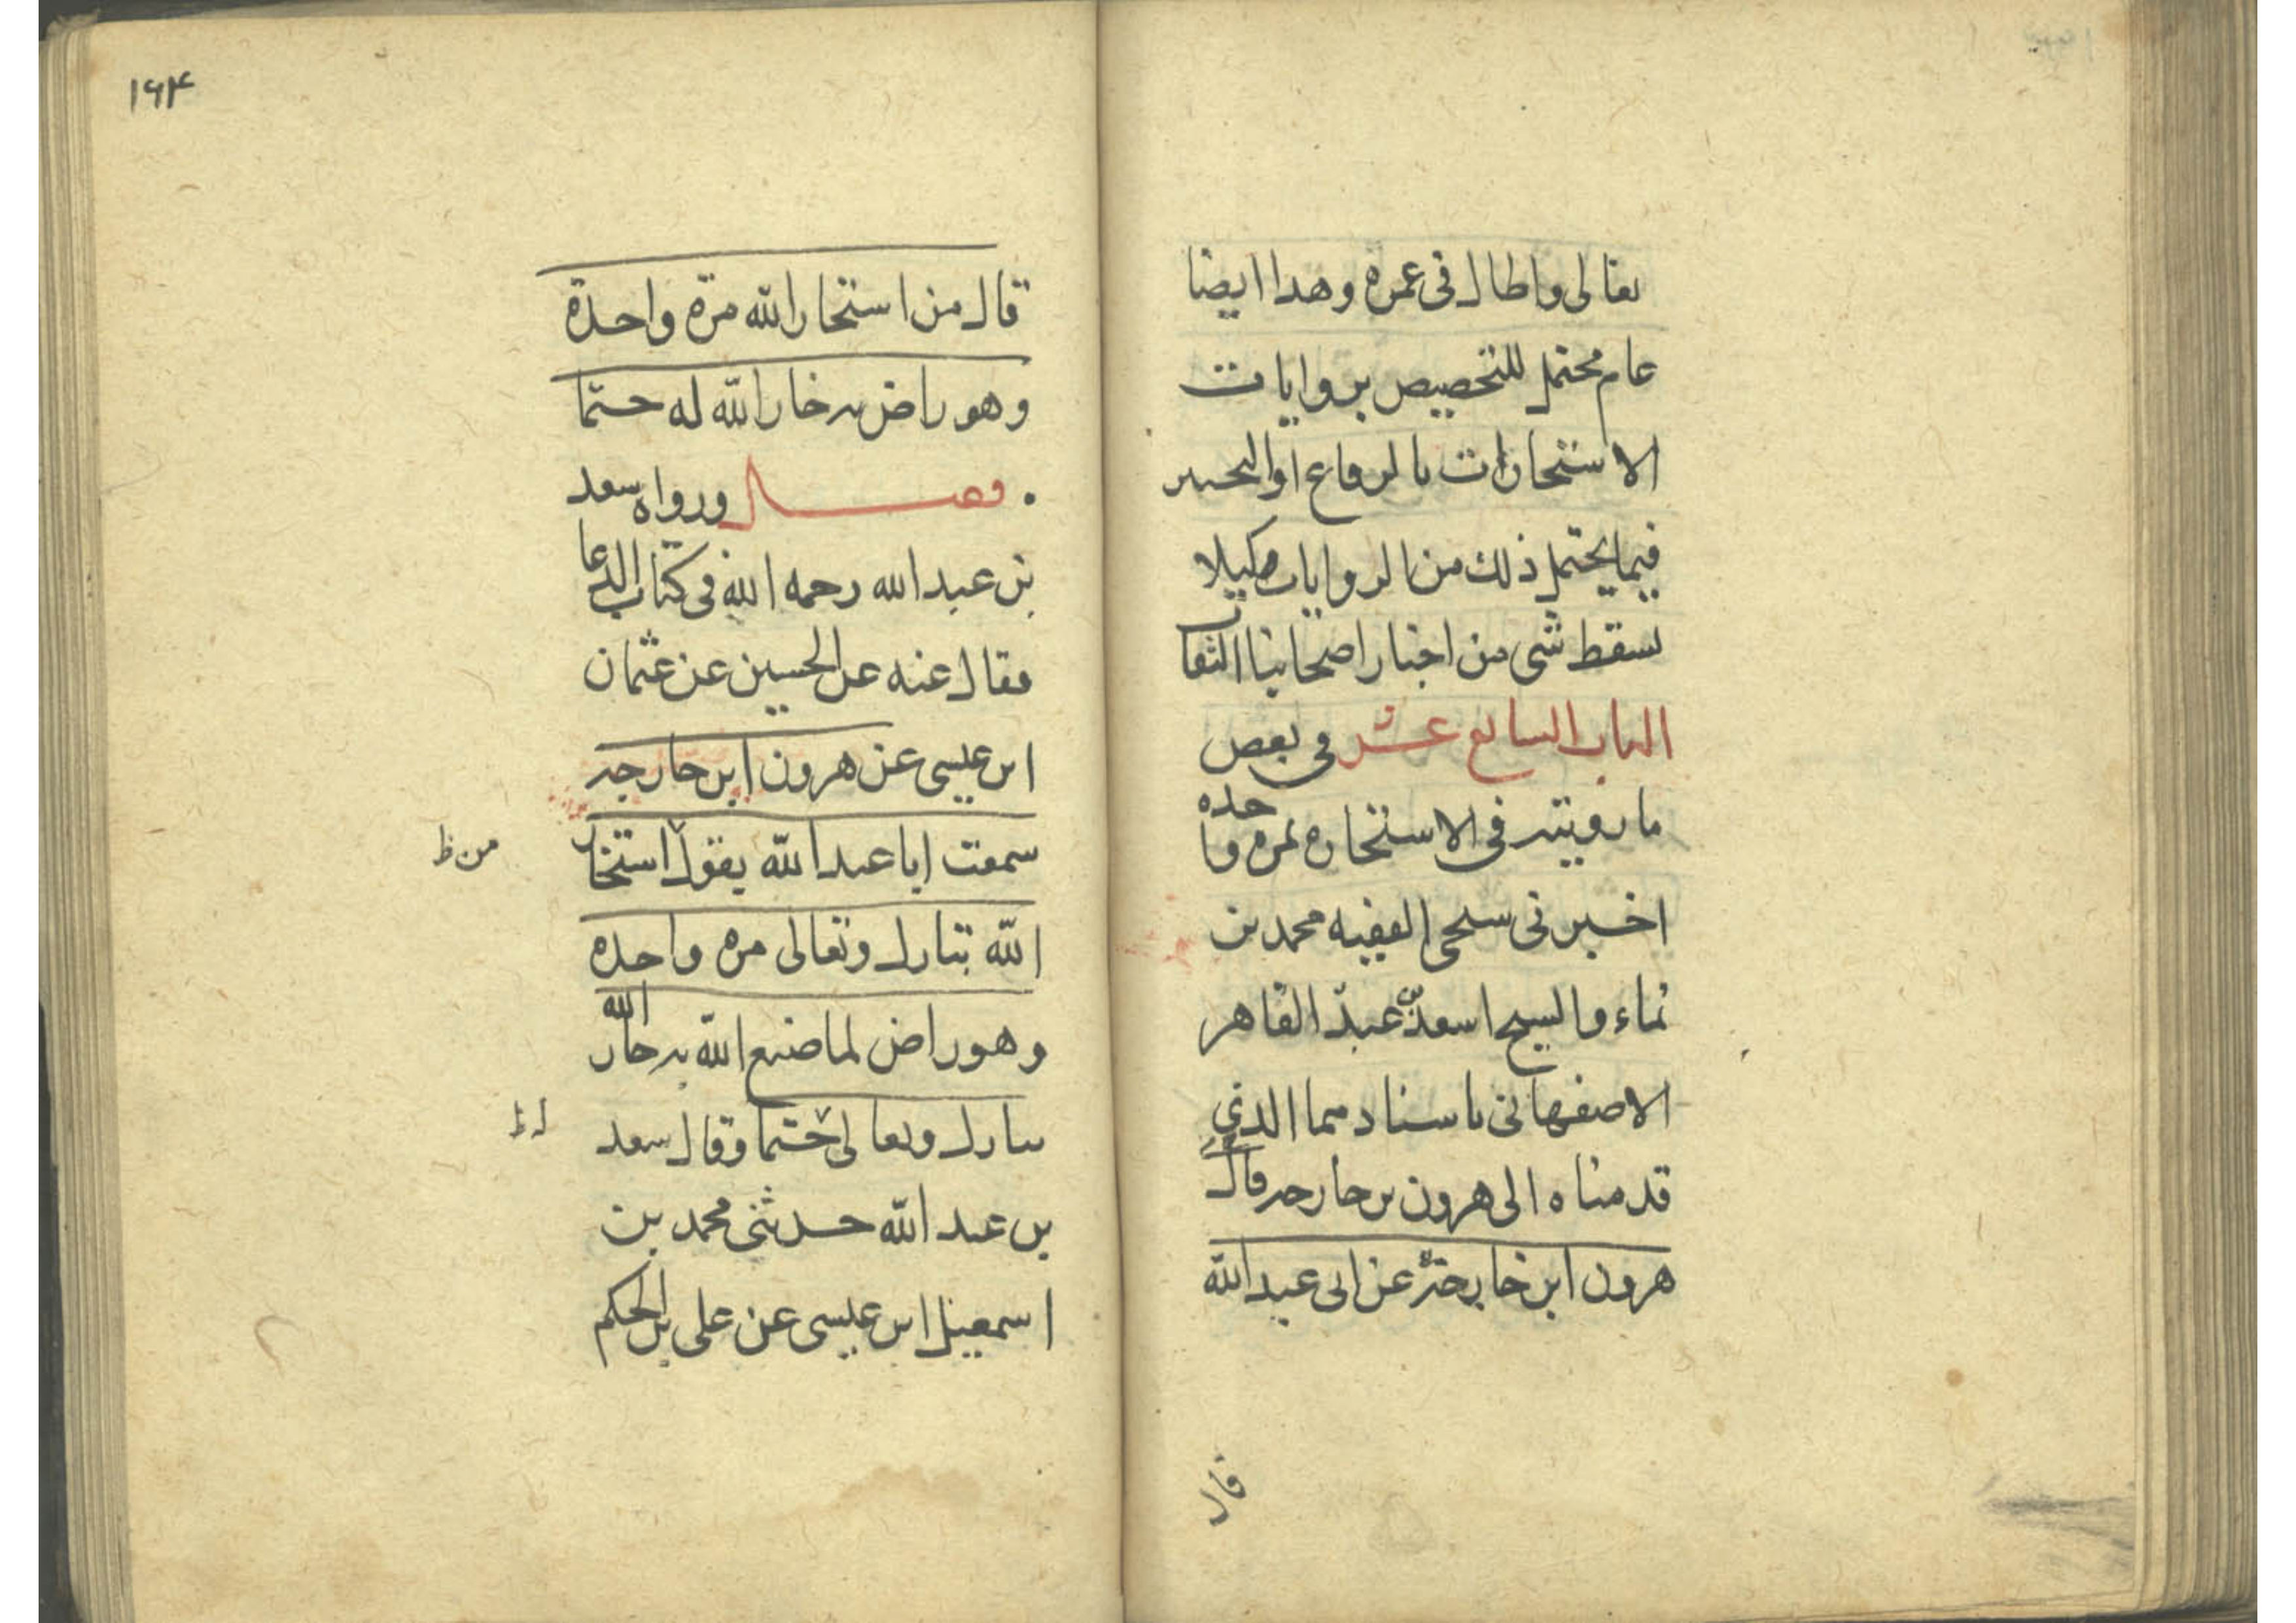 تعالى واطال فى عمره وهذا ايضا
عام محتمل للتخصيص بروايات
الاستخارات بالرقاع او
فيما يحتمل ذلك من الروايات لكيلا
يسقط شى من اخبار اصحابنا الثقات
الباب السابع عشر فى بعض
ما رويته فى الاستخاره بمره واحده
اخبرنى شيخى الفقيه محمد بن
نماء والشيخ اسعد بن عبد القاهر
الاصفهانى باسنادهما الذي
قدمناه الى هرون بن خارجه قال
هرون ابن خارجة عن ابى عبد الله
قال
۱۶۴
قال من استخار الله مرة واحدة
وهو راض به خار الله له حتما
. فصل ورواه سعد
بن عبد الله رحمه الله فى كتاب الدعا
فقال عنه عن الحسين عن عثمان
ابن عيسى عن هرون ابن خارجه
سمعت ابا عبد الله يقول استخار
من ظ
الله تبارك وتعالى مره واحده
وهو راض لما صنع الله به خار الله
تبارك وتعالى حتما وقال سعد
له ظ
بن عبد الله حدثنى محمد بن
اسمعيل ابن عيسى عن على بن الحكم